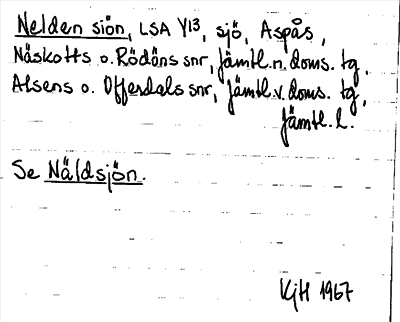 Nelden siön, LSA Y13, sjö, Aspås,
Näskotts o. Rödöns snr, Jämtl. n. doms. tg,
Alsens o. Offerdals snr, Jämtl. v. doms. tg,
Jämtl. l.
Se Näldsjön.
KjH 1967